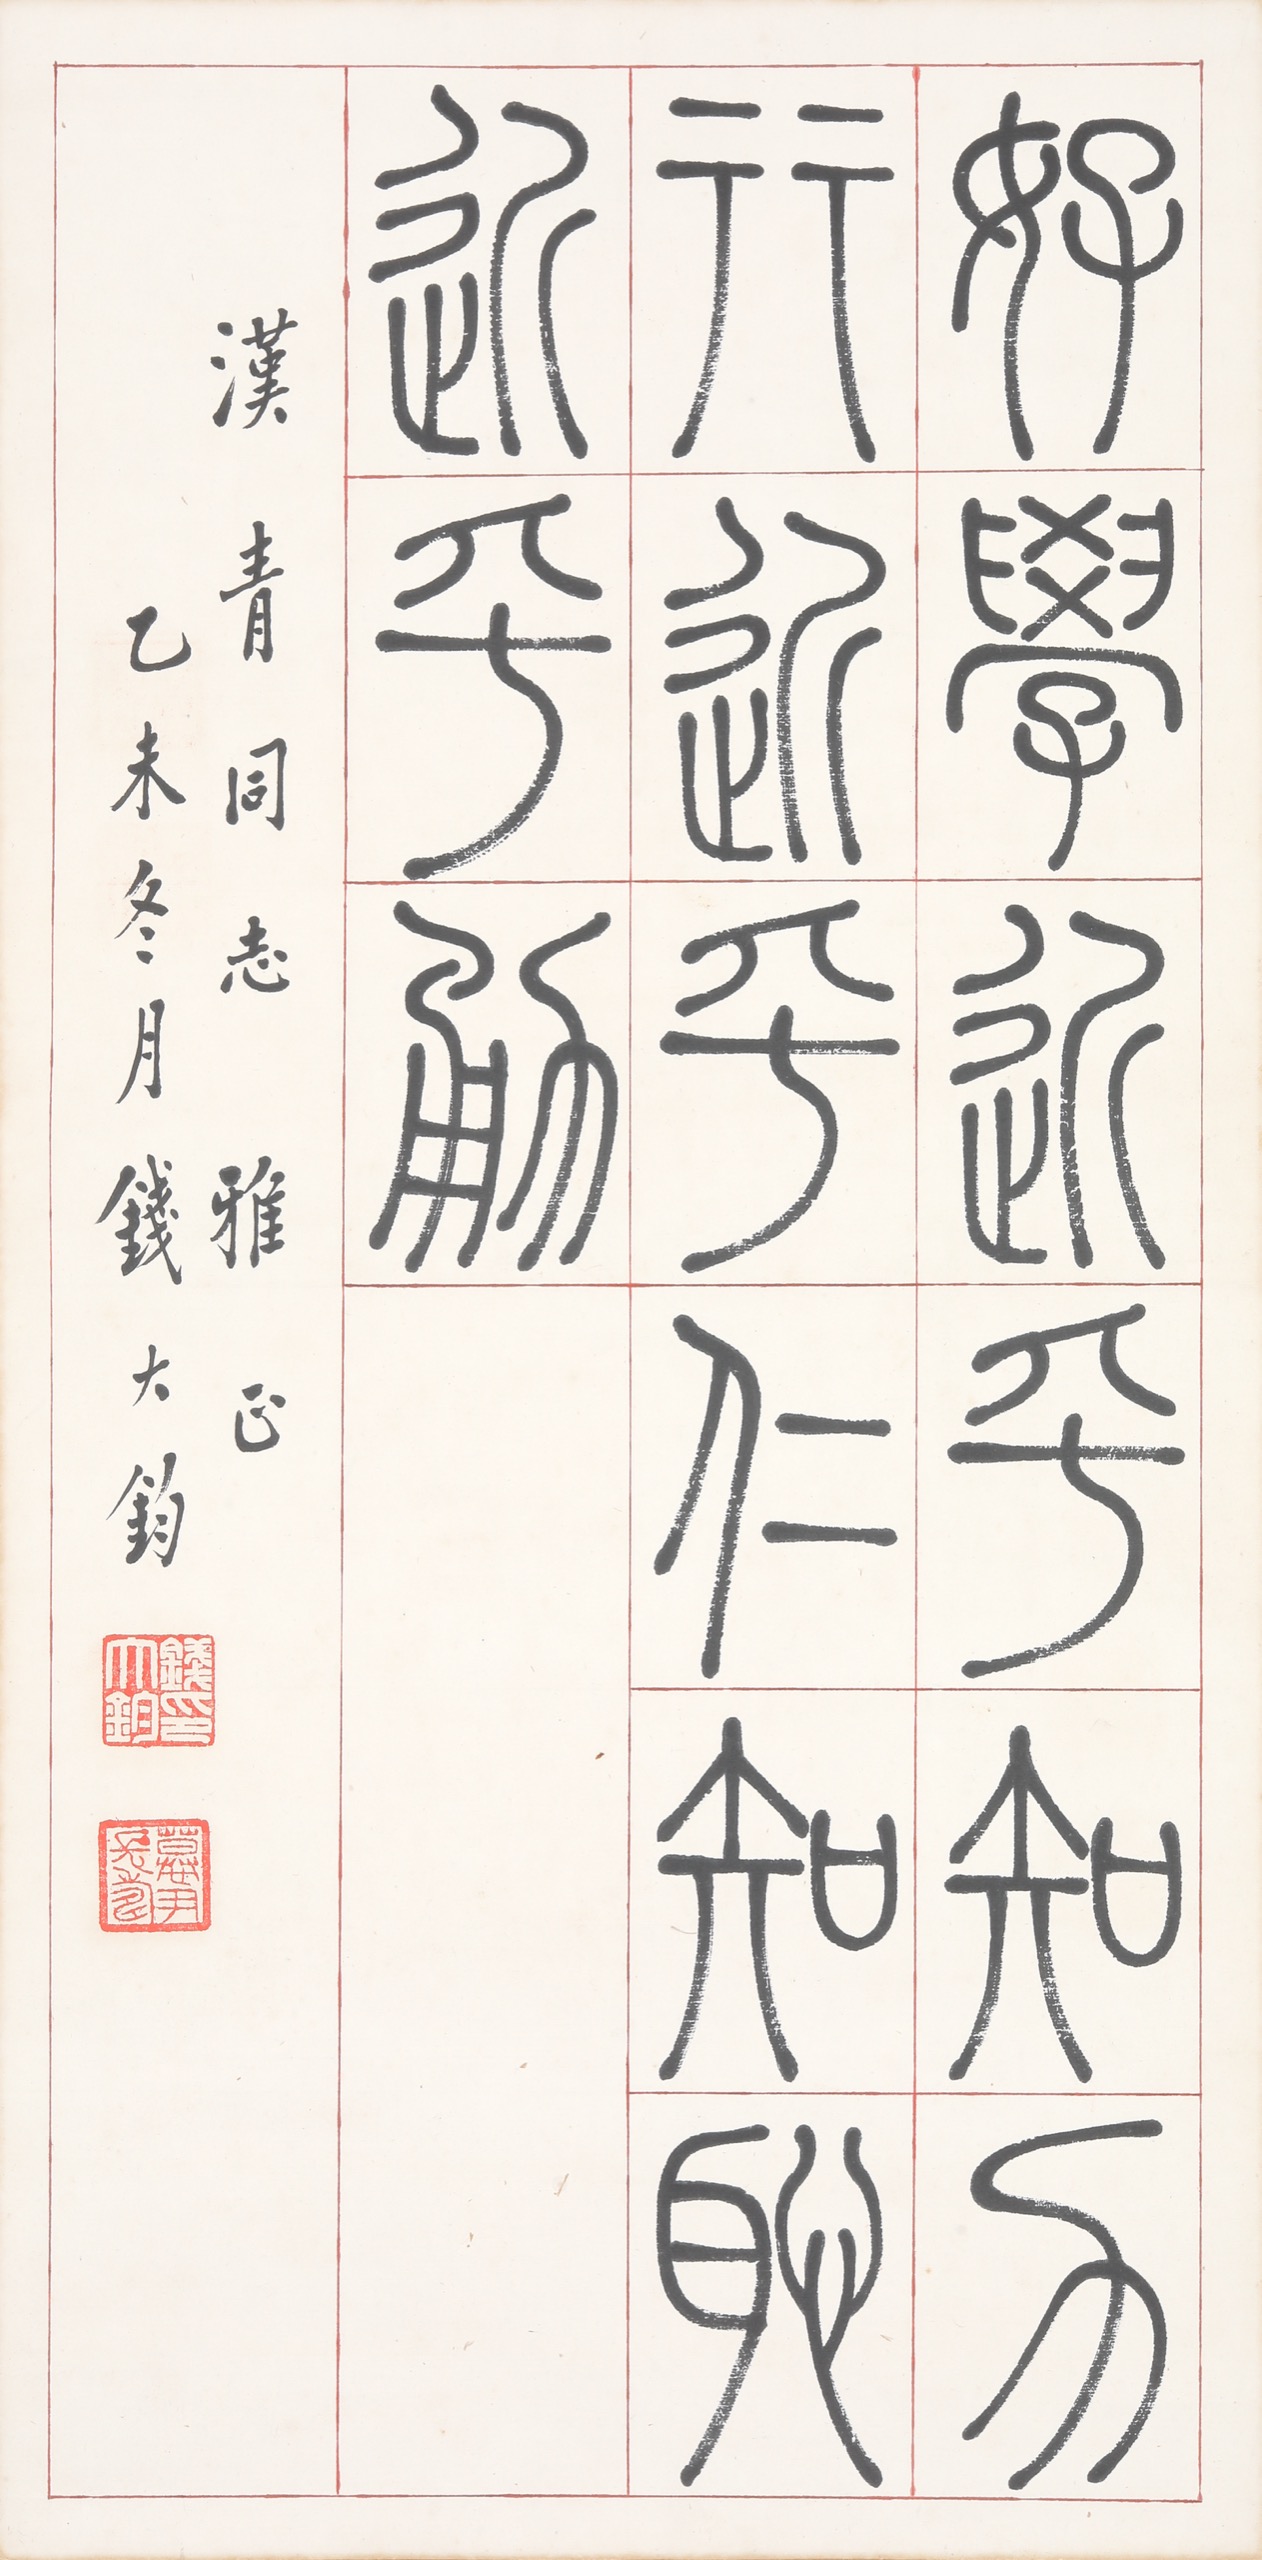 好學近乎知力
行近乎仁知恥
近乎勇
漢青同志雅正
乙未冬月錢大鈞
錢印大鈞
慕尹